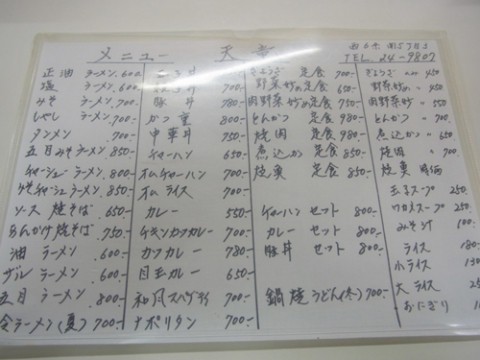 メニュー 天
TEL. 24-9807
正油 ラーメン 600.-
塩 ラーメン 600.-
みそ ラーメン 700.-
もやし ラーメン 700.-
タンメン 700.-
五目みそラーメン 850.-
チャーシューラーメン 800.-
みそチャーシューラーメン 850.-
ソース 焼そば 650.-
あんかけ焼そば 750.-
油 ラーメン 600.-
ザル ラーメン 600.-
五目 ラーメン 800.-
冷ラーメン(夏) 700.-
豚丼 780.-
かつ重 800.-
中華丼 750.-
チャーハン 650.-
オムチャーハン 700.-
オムライス 700.-
カレー 550.-
チキンカツカレー 700.-
カツカレー 780.-
目玉カレー 650.-
和風スパゲティ 700.-
ナポリタン 700.-
ぎょうざ 定食 700.-
野菜炒め定食 700.-
肉野菜炒め定食 750.-
とんかつ 定食 980.-
焼肉 定食 980.-
煮込かつ 定食 850.-
焼魚 定食
チャーハン セット 800.-
カレー セット 800.-
豚丼 セット 800.-
鍋焼うどん(冬) 700.-
ぎょうざ 450
野菜炒め 〃 450
肉野菜炒 〃 550
とんかつ 〃 700.-
煮込かつ 〃 850.-
焼肉 〃 700
焼魚 時価
玉子スープ 250
ワカメスープ 250.-
みそ汁 100.-
ライス 180.-
小ライス 130
大ライス
おにぎり